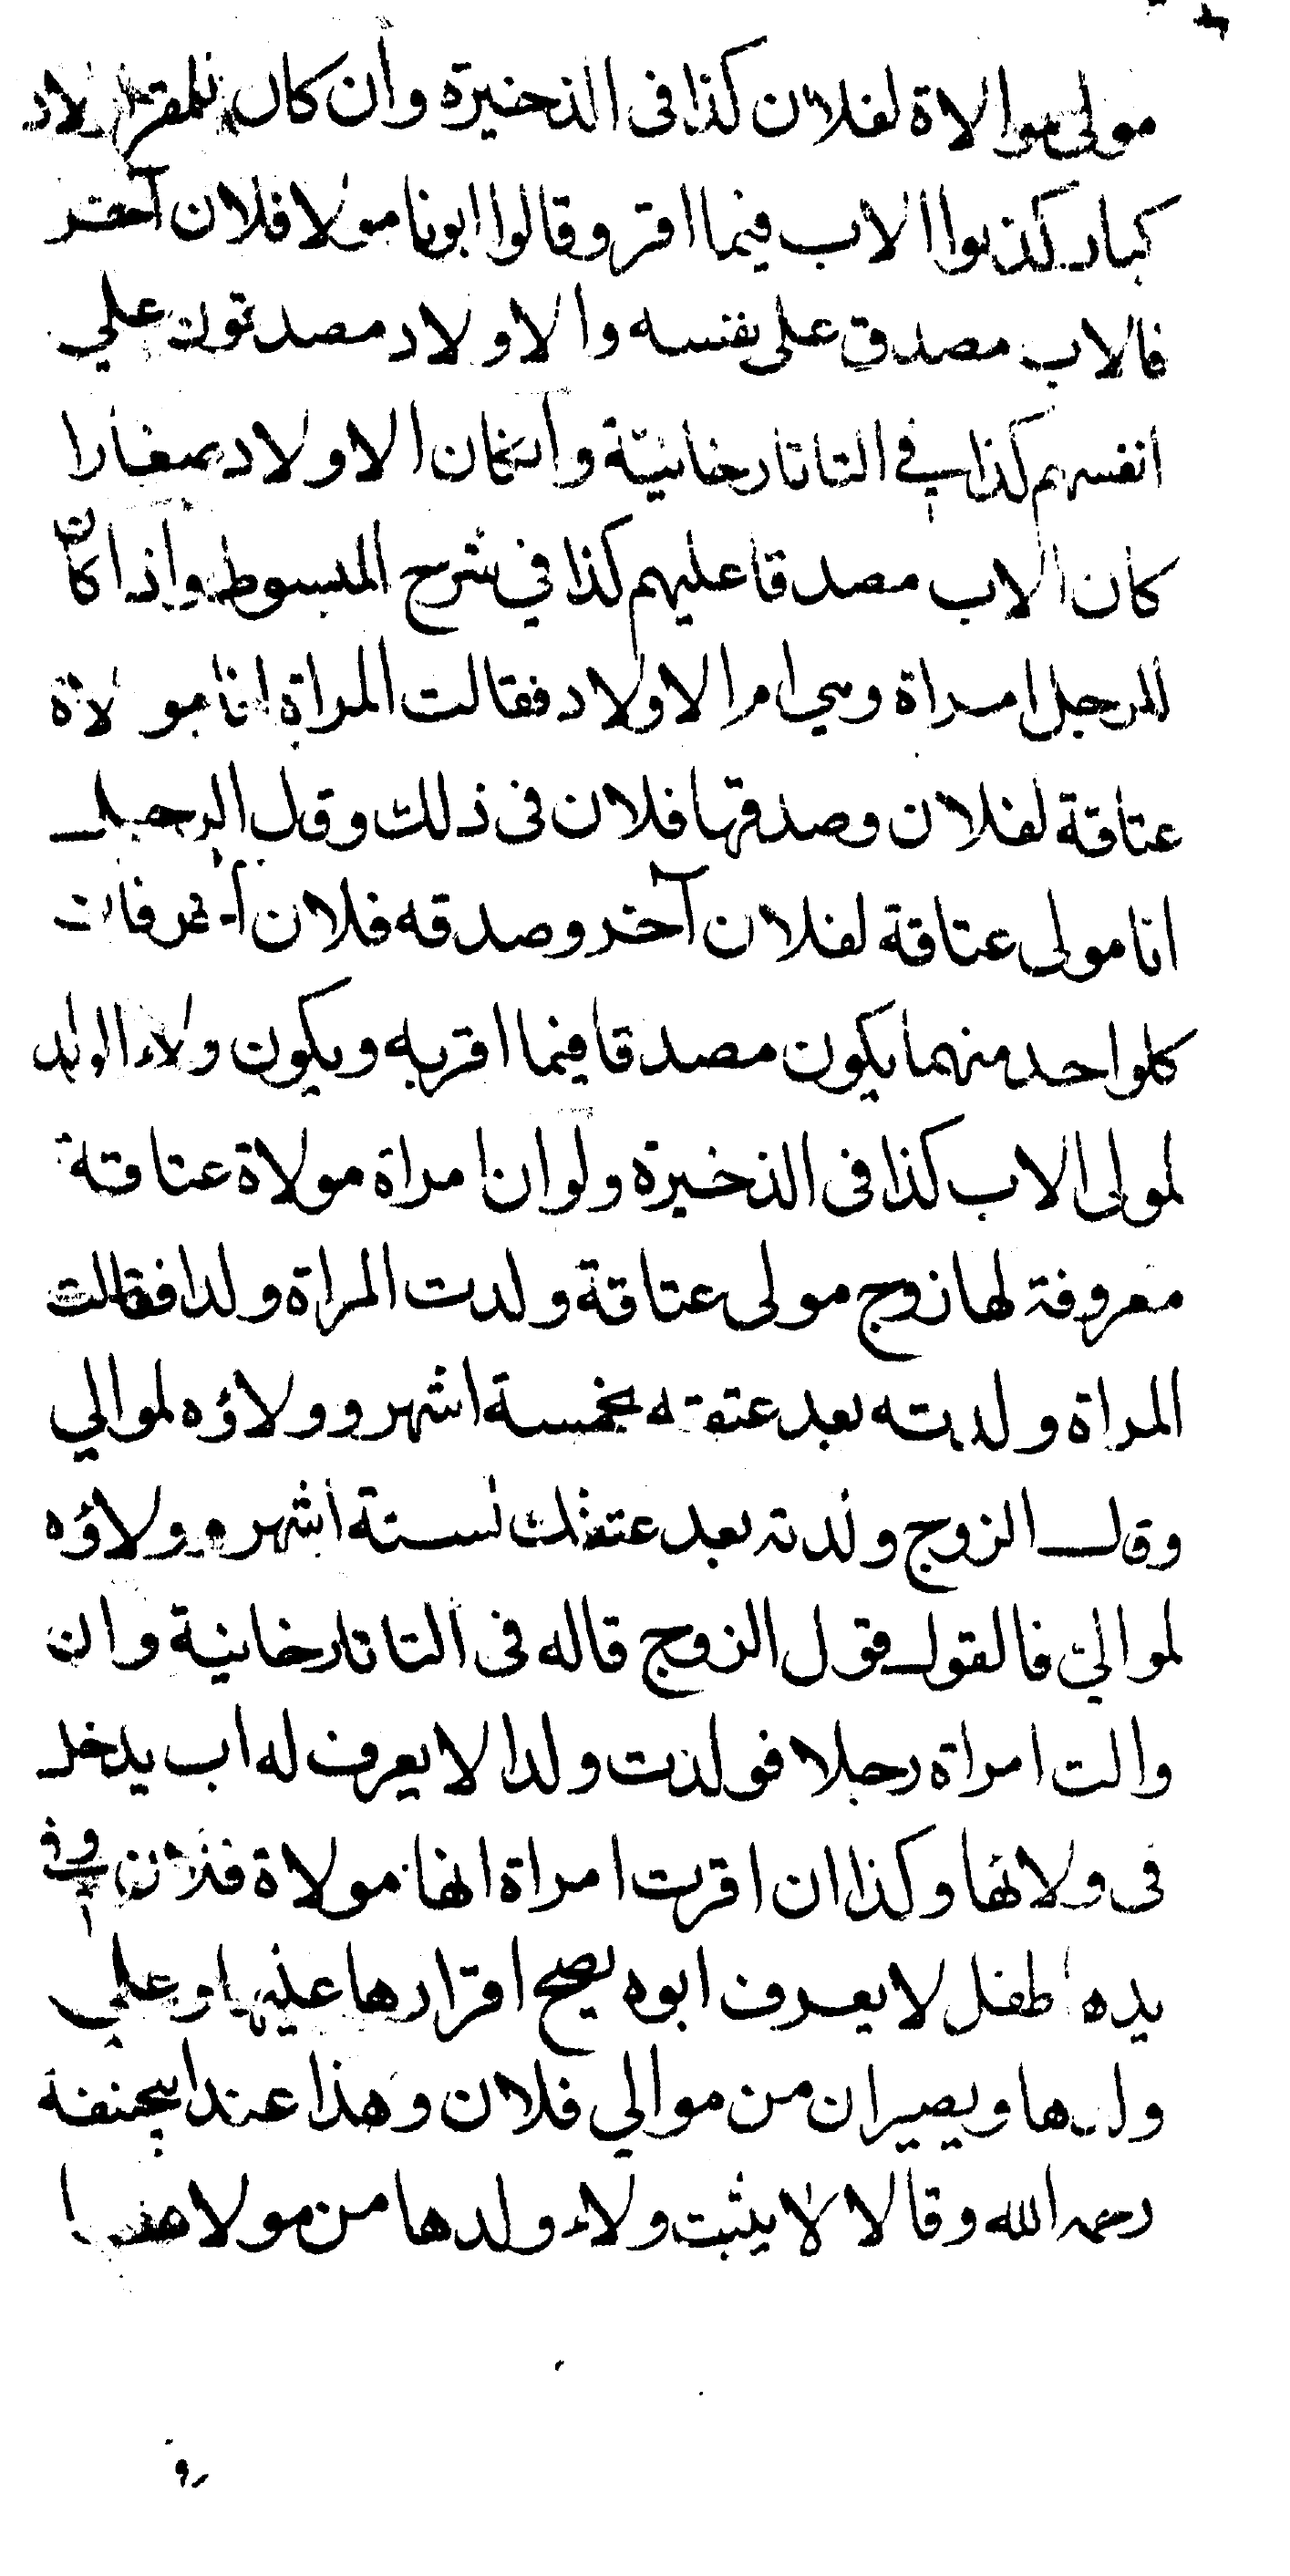 مولى موالاة لفلان كذا فى الذخيرة وان كان للمقر اولاد
كبار كذبوا الاب فيما اقر وقالوا ابونا مولا فلان آخر
فالاب مصدق على نفسه والاولاد مصدقون علي
انفسهم كذا في التاتارخانيّة وان كان الاولاد صغارا
كان الاب مصدقا عليهم كذا في شرح المبسوط واذا كان
للرجل امراة وهي ام الاولاد فقالت المراة انا مولاة
عتاقة لفلان وصدقها فلان فى ذلك وقال الرجل
انا مولى عتاقة لفلان آخر وصدقه فلان آخر فان
كلواحد منهما يكون مصدقا فيما اقر به ويكون ولاء الولد
لمولى الاب كذا فى الذخيرة ولو ان امراة مولاة عتاقة
معروفة لها زوج مولى عتاقة ولدت المراة ولدا فقالت
المراة ولدته بعد عتقه بخمسة اشهر وولاؤه لموالي
وقال الزوج ولدته بعد عتقك لستة اشهر وولاؤه
لموالىّ فالقول قول الزوج قاله فى التاتارخانية وان
والت امراة رجلا فولدت ولدا لا يعرف له اب يدخل
فى ولائها وكذا ان اقرت امراة انها مولاة فلان وفي
يدها طفل لا يعرف ابوه يصح اقرارها عليها وعلي
ولدها ويصيران من موالي فلان وهذا عند ابيحنيفة
رحمه الله وقالا لا يثبت ولاء ولدها من مولاها